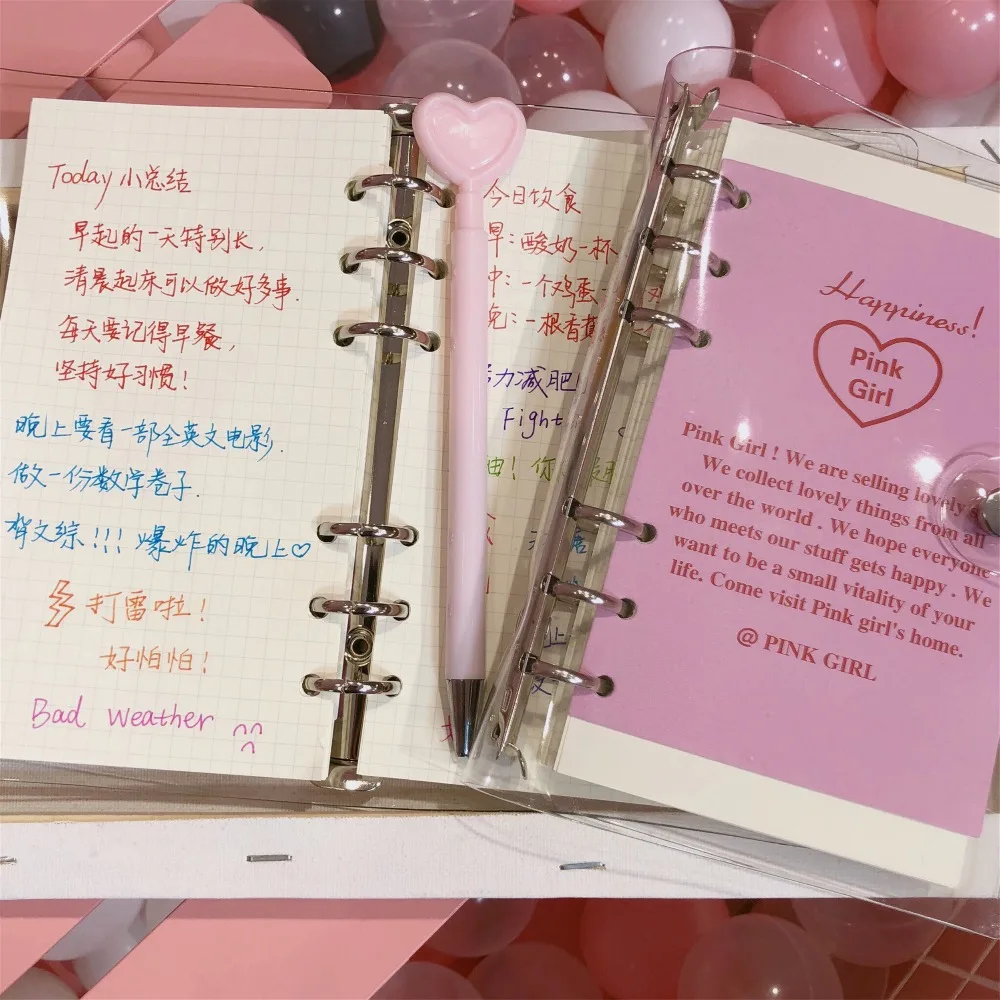 Today 小总结
早起的一天特别长,
清晨起床可以做好多事.
每天要记得早餐,
坚持好习惯!
晚上要看一部全英文电影.
做一份数学卷子.
背文综!!! 爆炸的晚上♡
打雷啦!
好怕怕!
Bad Weather
今日饮食
早:酸奶一杯
:一个鸡蛋
:一根香蕉
力减肥!
Fight
! 你
Happiness!
Pink
Girl
Pink Girl ! We are selling lovely
We collect lovely things from all
over the world . We hope everyone
who meets our stuff gets happy . We
want to be a small vitality of your
life. Come visit Pink girl's home.
@ PINK GIRL